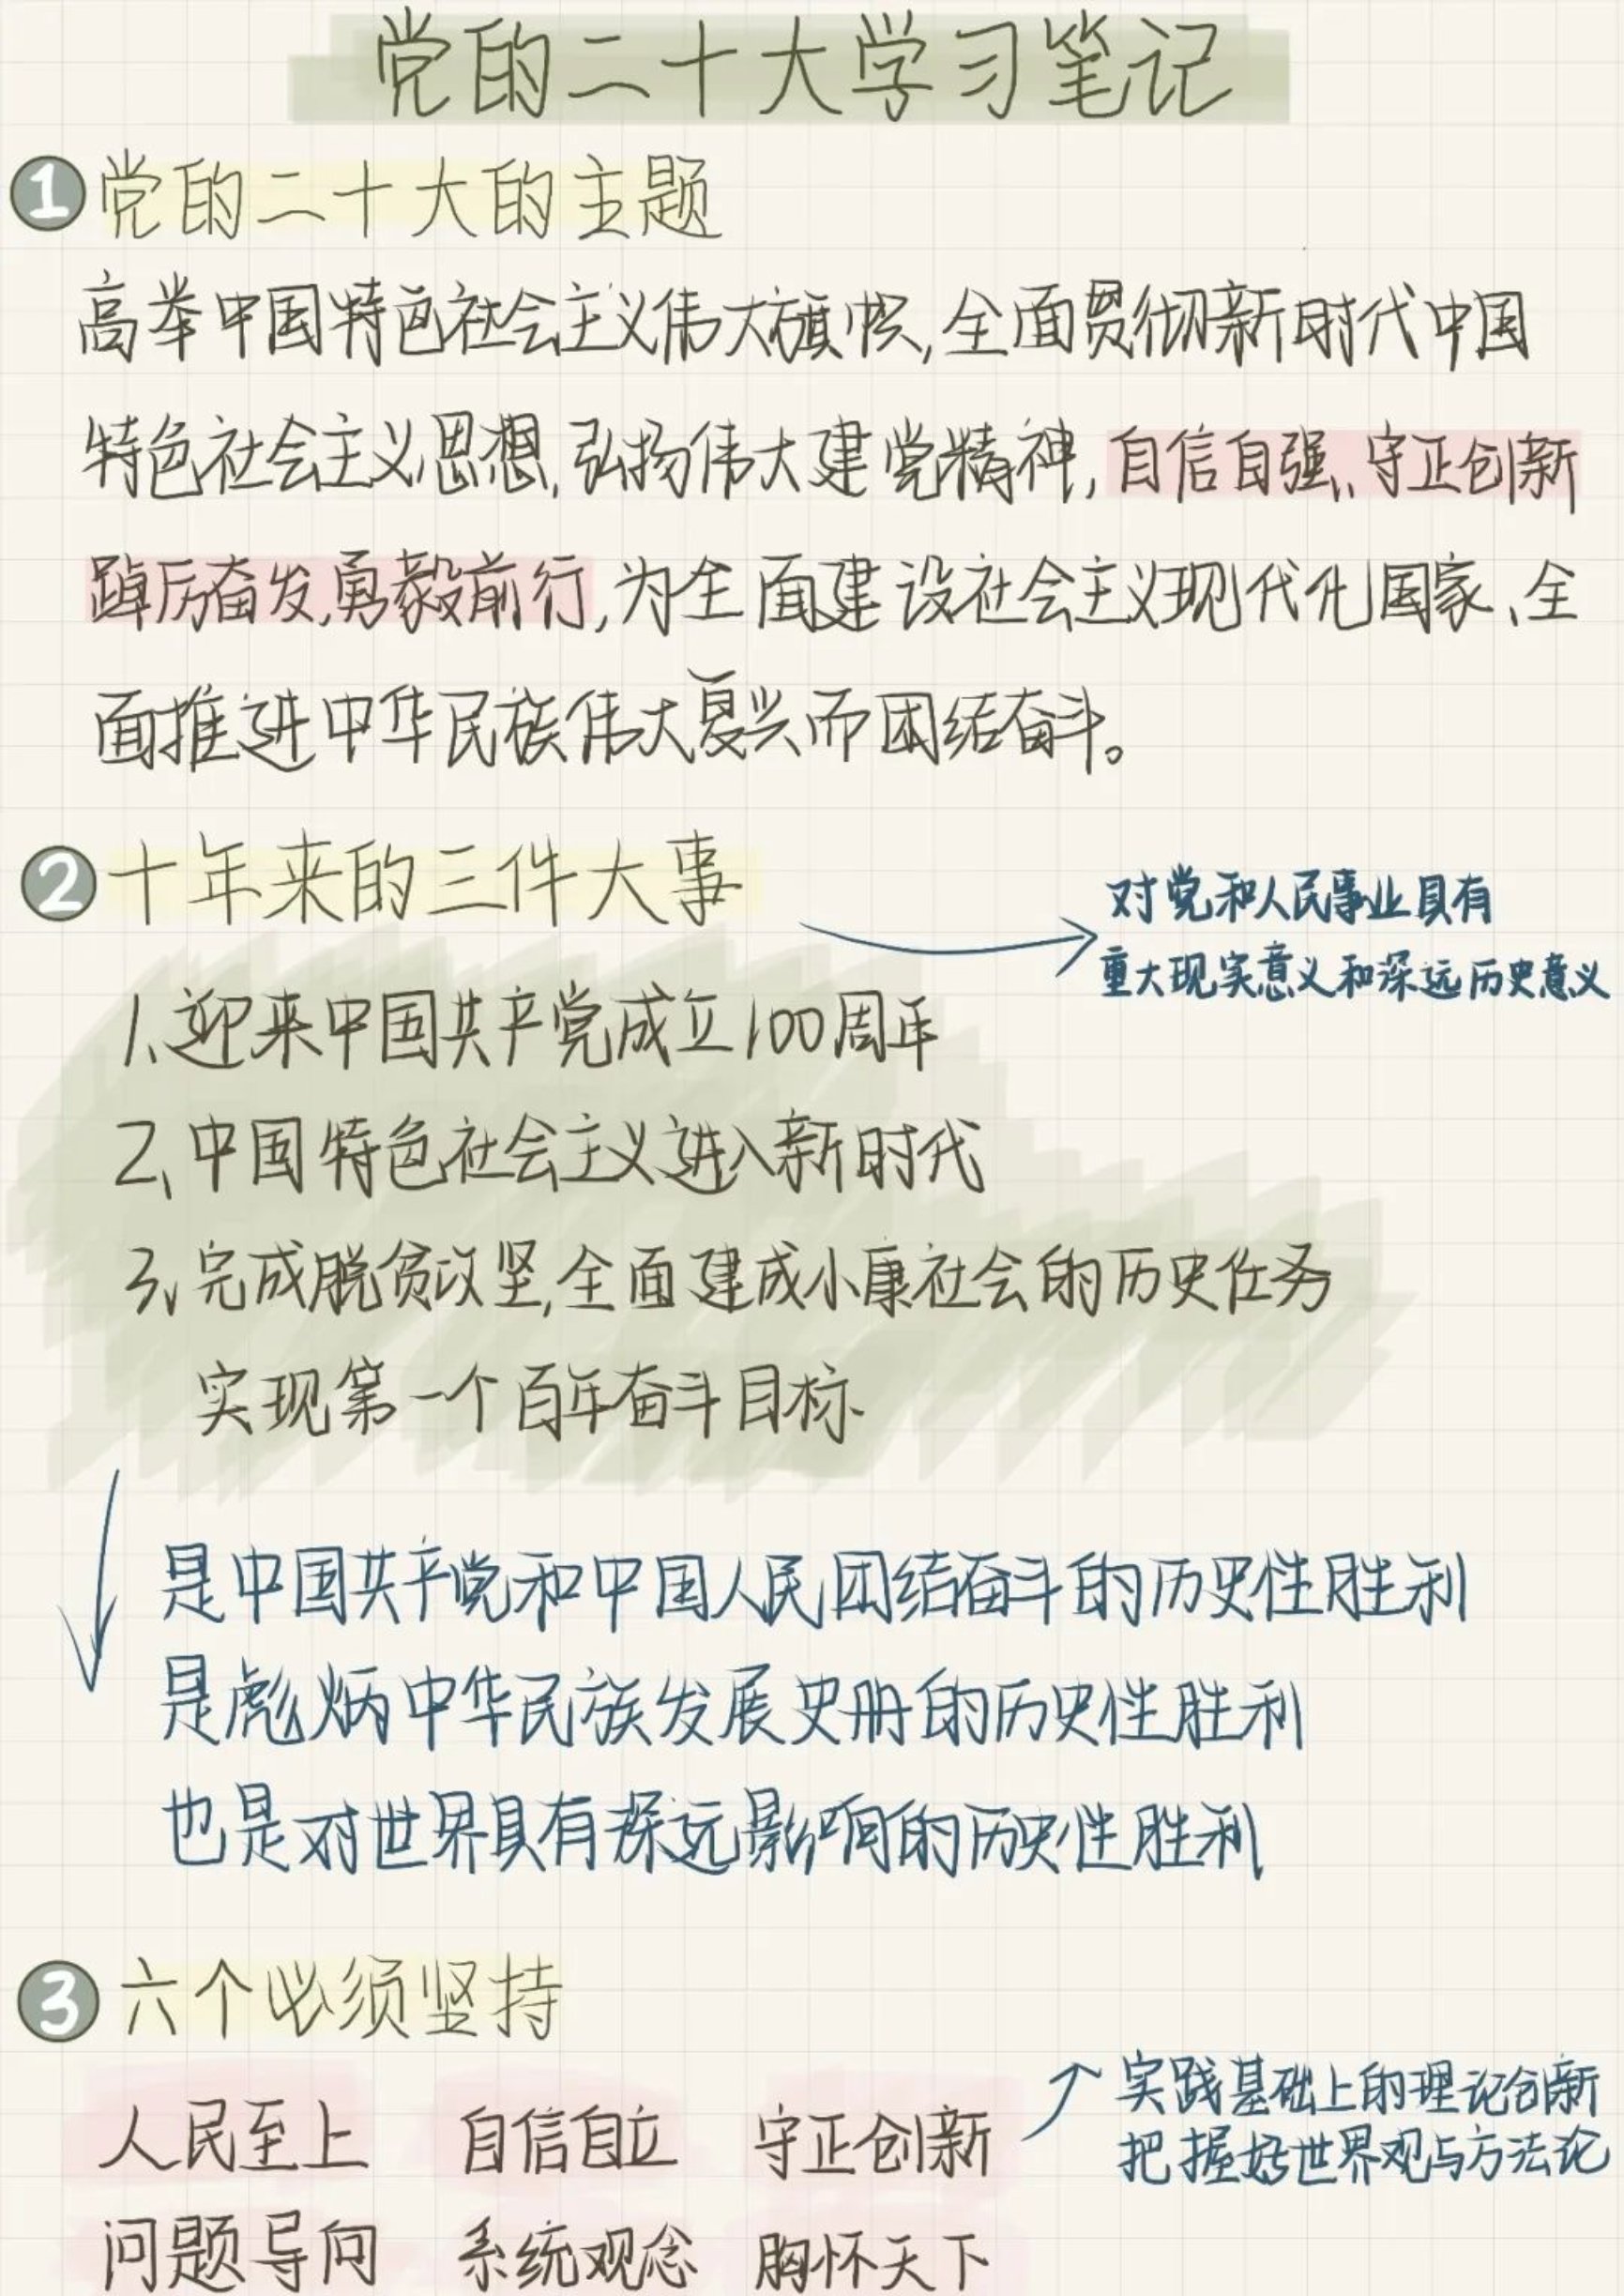 党的二十大学习笔记
1 党的二十大的主题
高举中国特色社会主义伟大旗帜,全面贯彻新时代中国
特色社会主义思想,弘扬伟大建党精神,自信自强、守正创新
踔厉奋发,勇毅前行,为全面建设社会主义现代化国家、全
面推进中华民族伟大复兴而团结奋斗。
2 十年来的三件大事
对党和人民事业具有
重大现实意义和深远历史意义
1、迎来中国共产党成立100周年
2、中国特色社会主义进入新时代
3、完成脱贫攻坚,全面建成小康社会的历史任务
实现第一个百年奋斗目标、
是中国共产党和中国人民团结奋斗的历史性胜利
是彪炳中华民族发展史册的历史性胜利
也是对世界具有深远影响的历史性胜利
3 六个必须坚持
实践基础上的理论创新
把握好世界观与方法论
人民至上 自信自立 守正创新
问题导向 系统观念 胸怀天下